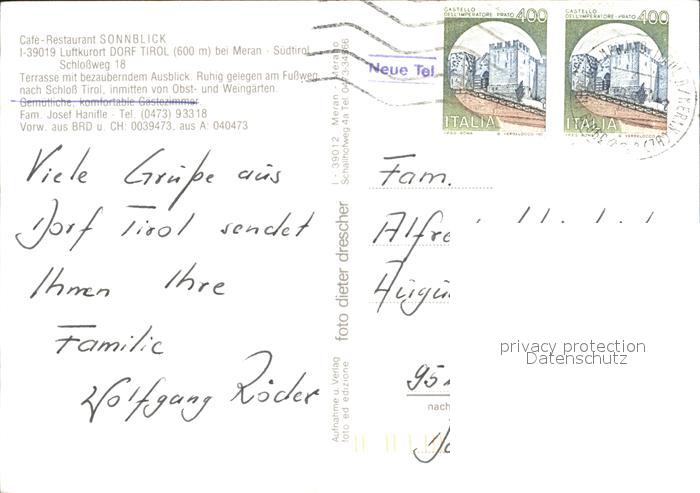 Café-Restaurant SONNBLICK
I-39019 Luftkurort DORF TIROL (600 m) bei Meran - Südtirol
Schloßweg 18
Terrasse mit bezauberndem Ausblick. Ruhig gelegen am Fußweg
nach Schloß Tirol, inmitten von Obst- und Weingärten.
Gemütliche, komfortable Gästezimmer.
Fam. Josef Hanifle - Tel. (0473) 93318
Vorw. aus BRD u. CH: 0039473, aus A: 040473
Neue Tel.
CASTELLO
DELL'IMPERATORE-PRATO 400
ITALIA
CASTELLO
DELL'IMPERATORE-PRATO 400
ITALIA
Viele Grüße aus
Dorf Tirol sendet
Ihnen Ihre
Familie
Wolfgang Röder
Aufnahme u. Verlag
foto ed edizione
foto dieter drescher
I - 39012 Meran - Merano
Fam.
Alfre
95
nach
privacy protection
Datenschutz